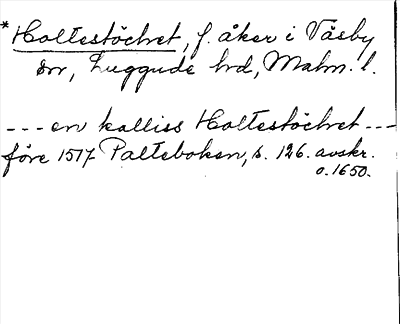 *Holtestöchret, f. åker i Väsby
sn, Luggude hd, Malm. l.
--- en kalliss Holtestöchret ---
före 1517 Palteboken, s. 126. avskr.
o. 1650.